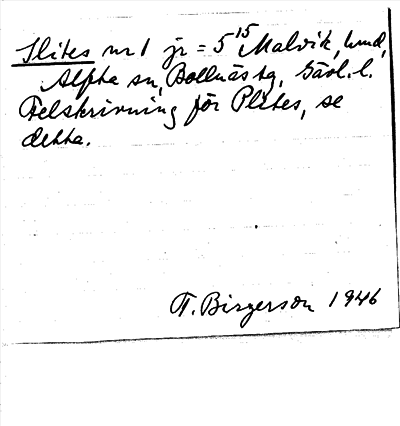 Ilites nr 1 jr = 5 15 Malvik, hmd,
Alfta sn, Bollnäs tg, Gävl. l.
Felskrivning för Plites, se
detta.
T. Birgerson 1946